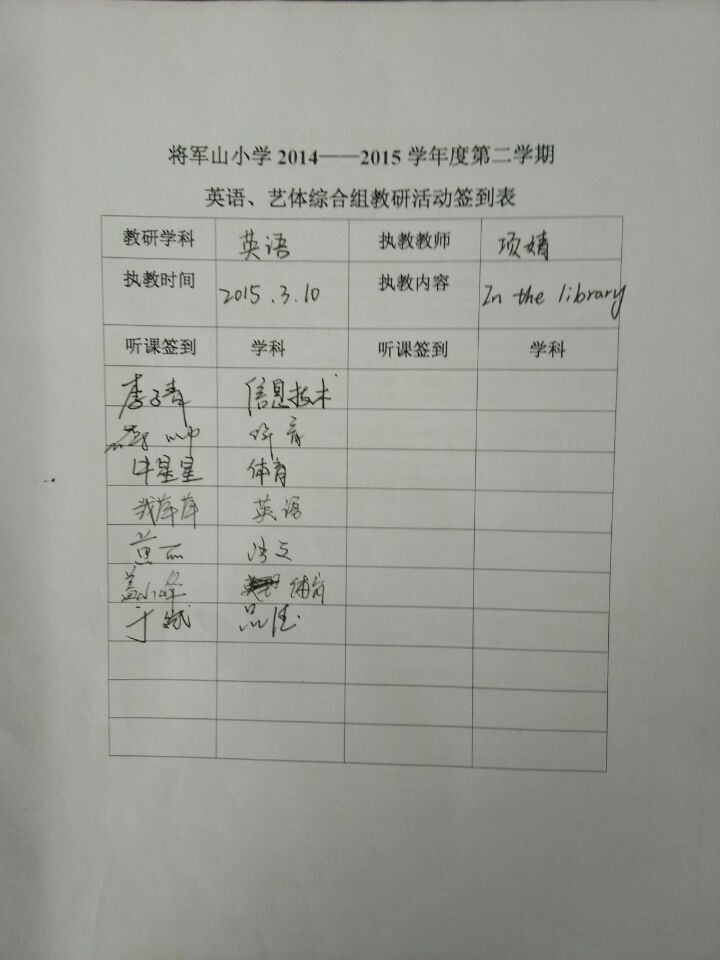 将军山小学 2014——2015 学年度第二学期
英语、艺体综合组教研活动签到表
教研学科 英语 执教教师 项婧
执教时间 2015.3.10 执教内容 In the library
听课签到 学科 听课签到 学科
李子青 信息技术
体育
牛星星 体育
萍萍 英语
黄丽 语文
盖小峰 体育
于斌 品德